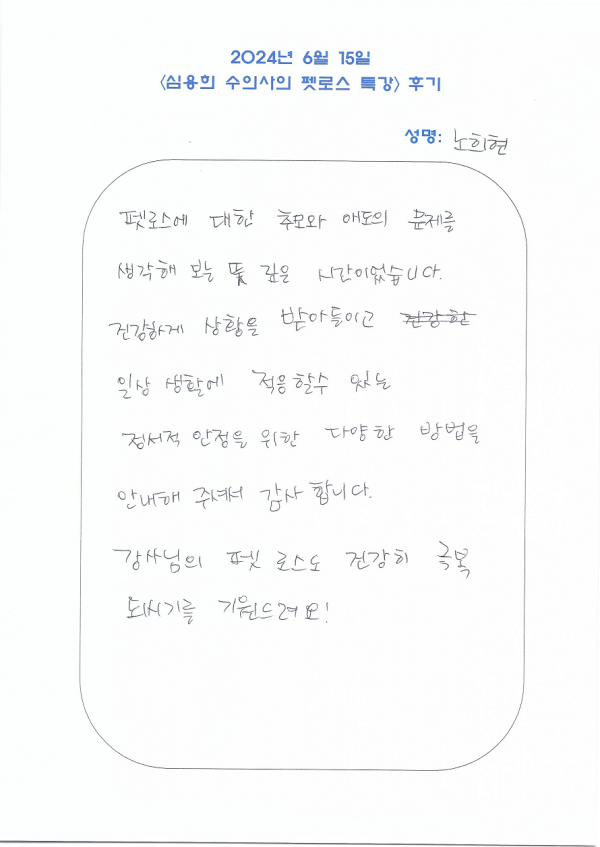 2024년 6월 15일
<심용희 수의사의 펫로스 특강> 후기
성명: 노희현
펫로스에 대한 추모와 애도의 문제를
생각해 보는 뜻 깊은 시간이었습니다.
건강하게 상황을 받아들이고 건강한
일상 생활에 적응할수 있는
정서적 안정을 위한 다양한 방법을
안내해 주셔서 감사 합니다.
강사님의 펫 로스도 건강히 극복
되시기를 기원드려요!